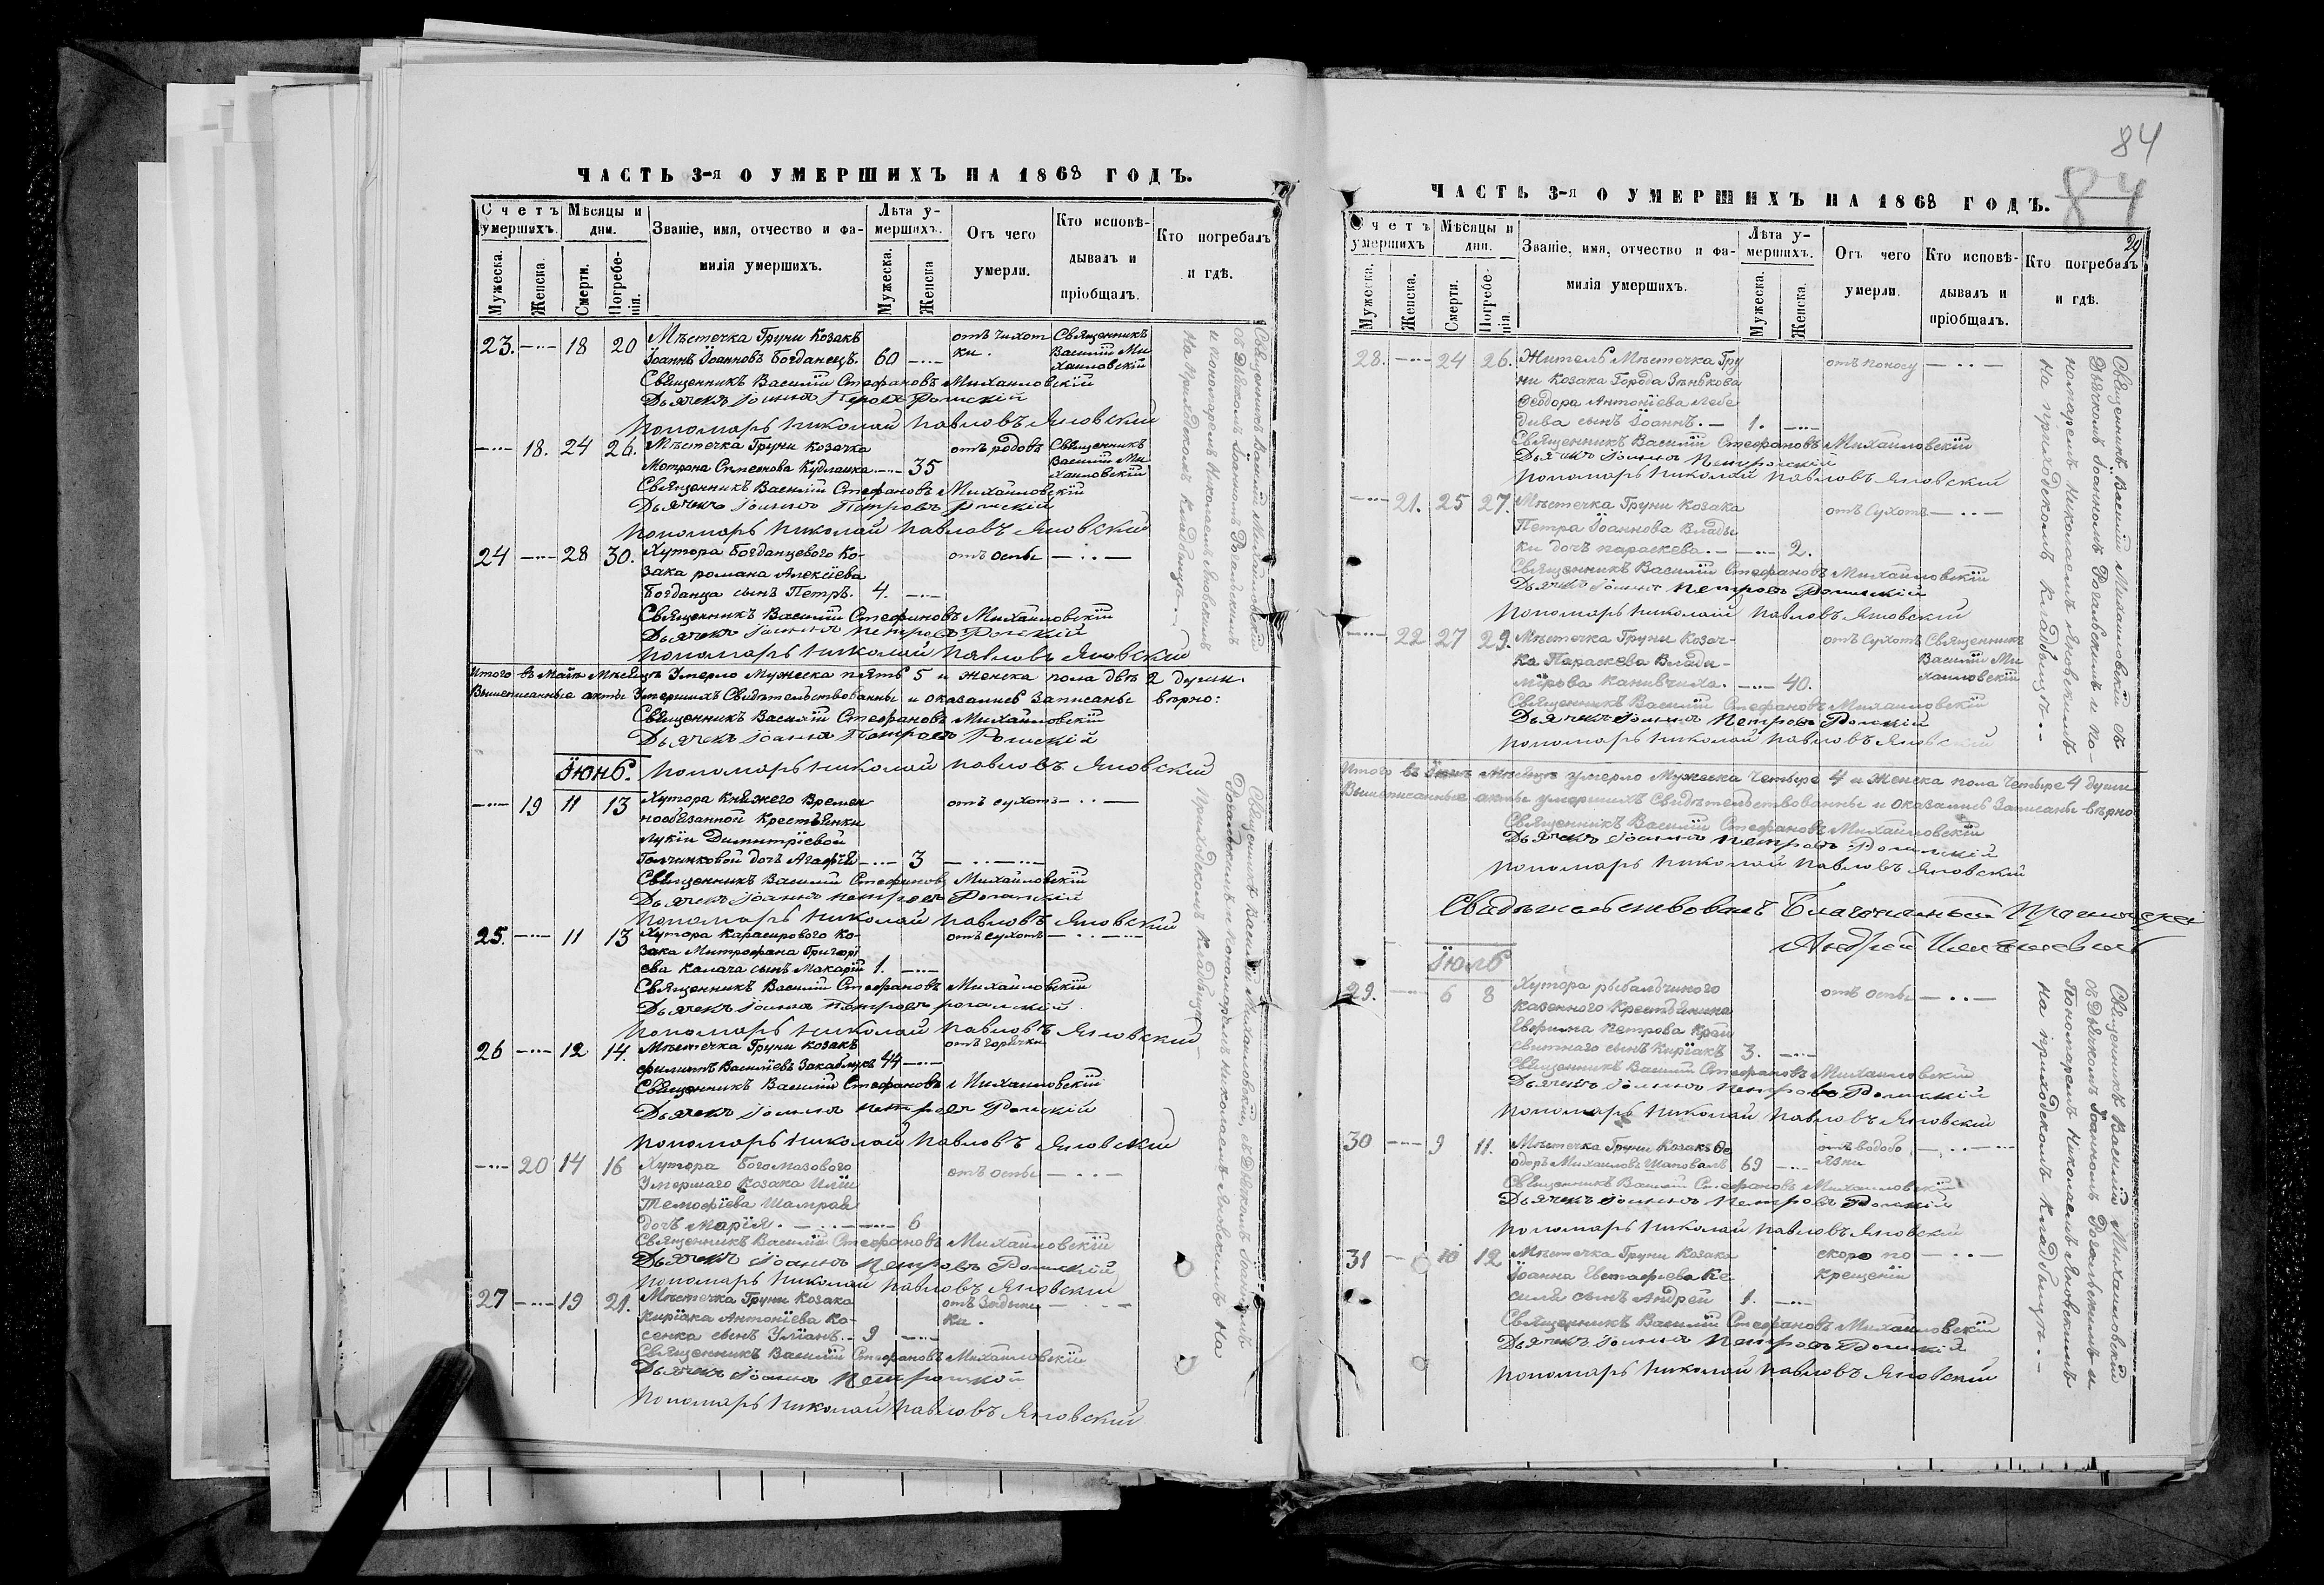 ЧАСТЬ 3-я О УМЕРШИХЪ НА 1868 ГОДЪ.
Счетъ умершихъ.
Мѣсяцы и дни.
Званіе, имя, отчество и фамилія умершихъ.
Лѣта умершихъ.
Отъ чего умерли.
Кто исповѣдывалъ и пріобщалъ.
Кто погребалъ и гдѣ.
Мужеска.
Женска.
Смерти.
Погребенія.
Мужеска.
Женска
23. 18 20 Мѣстечка Груни Козакъ отъ чихот Священникъ
Іоаннъ Іоанновъ Богданецъ. 60 ки. Василій Ми
хаиловскій
Священникъ Василій Стефановъ Михаиловскій
Дьячекъ Іоаннъ
Пономарь Николай Павловъ Яновскій
18. 24 26. Мѣстечка Груни Козачка отъ родовъ Священникъ
Мотрона Симеонова 35 Василій Ми
хаиловскій
Священникъ Василій Стефановъ Михаиловскій
Дьячекъ Іоаннъ Петровъ
Пономарь Николай Павловъ Яновскій
24 28 30. Хутора Богданцевого Ко- отъ оспы
зака романа Алексіева
Богданца сынъ Петръ. 4.
Священникъ Василій Стефановъ Михаиловскій
Дьячекъ Іоаннъ Петровъ
Пономарь Николай Павловъ Яновскій
Итого въ Маѣ Мѣсяцѣ Умерло Мужеска пять 5 и женска пола двѣ 2 души.
Вышеписанные акты Умершихъ Свидѣтельствованны и оказались Записаны вѣрно:
Священникъ Василій Стефановъ Михаиловскій
Дьячекъ Іоаннъ Петровъ
Іюнь. Пономарь Николай Павловъ Яновскій
19 11 13 Хутора Княжего Времен отъ сухотъ
нообязанной Крестьянки
Лукіи Димитріевой
дочь Агафія 3
Священникъ Василій Стефановъ Михаиловскій
Дьячекъ Іоаннъ Петровъ
Пономарь Николай Павловъ Яновскій
25. 11 13 Хутора Карасирового Ко- отъ сухотъ
зака Митрофана Григорі
ева Калача сынъ Макарій 1.
Священникъ Василій Стефановъ Михаиловскій
Дьячекъ Іоаннъ Петровъ
Пономарь Николай Павловъ Яновскій
26 12 14. Мѣстечка Груни Козакъ отъ горячки
филиппъ Василіевъ Закаблукъ 44
Священникъ Василій Стефановъ Михаиловскій
Дьячекъ Іоаннъ Петровъ
Пономарь Николай Павловъ Яновскій
20 14 16 Хутора Богомазового отъ оспы
Умершаго Козака Иліи
Темофіева Шамрая
дочь Марія. 6
Священникъ Василій Стефановъ Михаиловскій
Дьячекъ Іоаннъ Петровъ
Пономарь Николай Павловъ Яновскій
27 19 21. Мѣстечка Груни Козака
Киріака Антоніева Ко- ки.
сенка сынъ Уліанъ. 9
Священникъ Василій Стефановъ Михаиловскій
Дьячекъ Іоаннъ
Пономарь Николай Павловъ Яновскій
Священникъ Василій Михаиловскій
съ Дьячкомъ Іоанномъ Рогальскимъ
и пономаремъ Николаемъ Яновскимъ
на Приходскомъ Кладбищѣ
Священникъ Василій Михаиловскій, съ Дьячкомъ Іоанномъ
Рогальскимъ и Пономаремъ Николаемъ Яновскимъ на
Приходскомъ Кладбищѣ
84
84
ЧАСТЬ 3-я О УМЕРШИХЪ НА 1868 ГОДЪ.
Счетъ умершихъ
Мѣсяцы и дни.
Званіе, имя, отчество и фамилія умершихъ.
Лѣта умершихъ.
Отъ чего умерли.
Кто исповѣдывалъ и пріобщалъ.
Кто погребалъ и гдѣ.
Мужеска.
Женска.
Смерти.
Погребенія.
Мужеска.
Женска.
28. 24 26. Житель Мѣстечка Гру отъ поносу
ни Козака Города Зѣнькова
Феодора Антоніева Лебе
дива сынъ Іоаннъ. 1.
Священникъ Василій Стефановъ Михаиловскій
Дьячекъ Іоаннъ
Пономарь Николай Павловъ Яновскій
21. 25 27. Мѣстечка Груни Козака отъ Сухотъ
Петра Іоаннова Влады
ки дочь параскева. 2.
Священникъ Василій Стефановъ Михаиловскій
Дьячекъ Іоаннъ Петровъ
Пономарь Николай Павловъ Яновскій
22 27 29. Мѣстечка Груни Козач- отъ Сухотъ Священникъ
ка Параскева Влади- Василій Ми
мірова Канивчиха. 40. хаиловскій
Священникъ Василій Стефановъ Михаиловскій
Дьячекъ Іоаннъ Петровъ
Пономарь Николай Павловъ Яновскій
Итого въ Іюнѣ Мѣсяцѣ умерло Мужеска Четыре 4 и Женска пола Четыре 4 души
Вышеписанные акты умершихъ Свидѣтельствованны и оказались Записаны вѣрно
Священникъ Василій Стефановъ Михаиловскій
Дьячекъ Іоаннъ Петровъ
Пономарь Николай Павловъ Яновскій
Свидѣтельствовалъ Благочинный
Андрей
Іюль
29. 6 8 Хутора рыбальчиного отъ оспы
Казенного Крестьянина
Евфима Петрова Край
свитнаго сынъ Киріакъ 3.
Священникъ Василій Стефановъ Михаиловскій
Дьячекъ Іоаннъ Петровъ
Пономарь Николай Павловъ Яновскій
30 9 11. Мѣстечка Груни Козакъ Ѳе отъ водобо
одоръ Михаиловъ Шаповалъ 69 язни
Священникъ Василій Стефановъ Михаиловскій
Дьячекъ Іоаннъ Петровъ
Пономарь Николай Павловъ Яновскій
31 10 12 Мѣстечка Груни Козака скоро по
Іоанна Евстафіева Ке крещеніи
силя сынъ Андрей 1.
Священникъ Василій Стефановъ Михаиловскій
Дьячекъ Іоаннъ Петровъ
Пономарь Николай Павловъ Яновскій
Священникъ Василій Михаиловскій съ
Дьячкомъ Іоанномъ Рогальскимъ и по-
номаремъ Николаемъ Яновскимъ
на приходскомъ Кладбищѣ
Священникъ Василій Михаиловскій
съ Дьячкомъ Іоанномъ Рогальскимъ и
Пономаремъ Николаемъ Яновскимъ
на приходскомъ Кладбищѣ